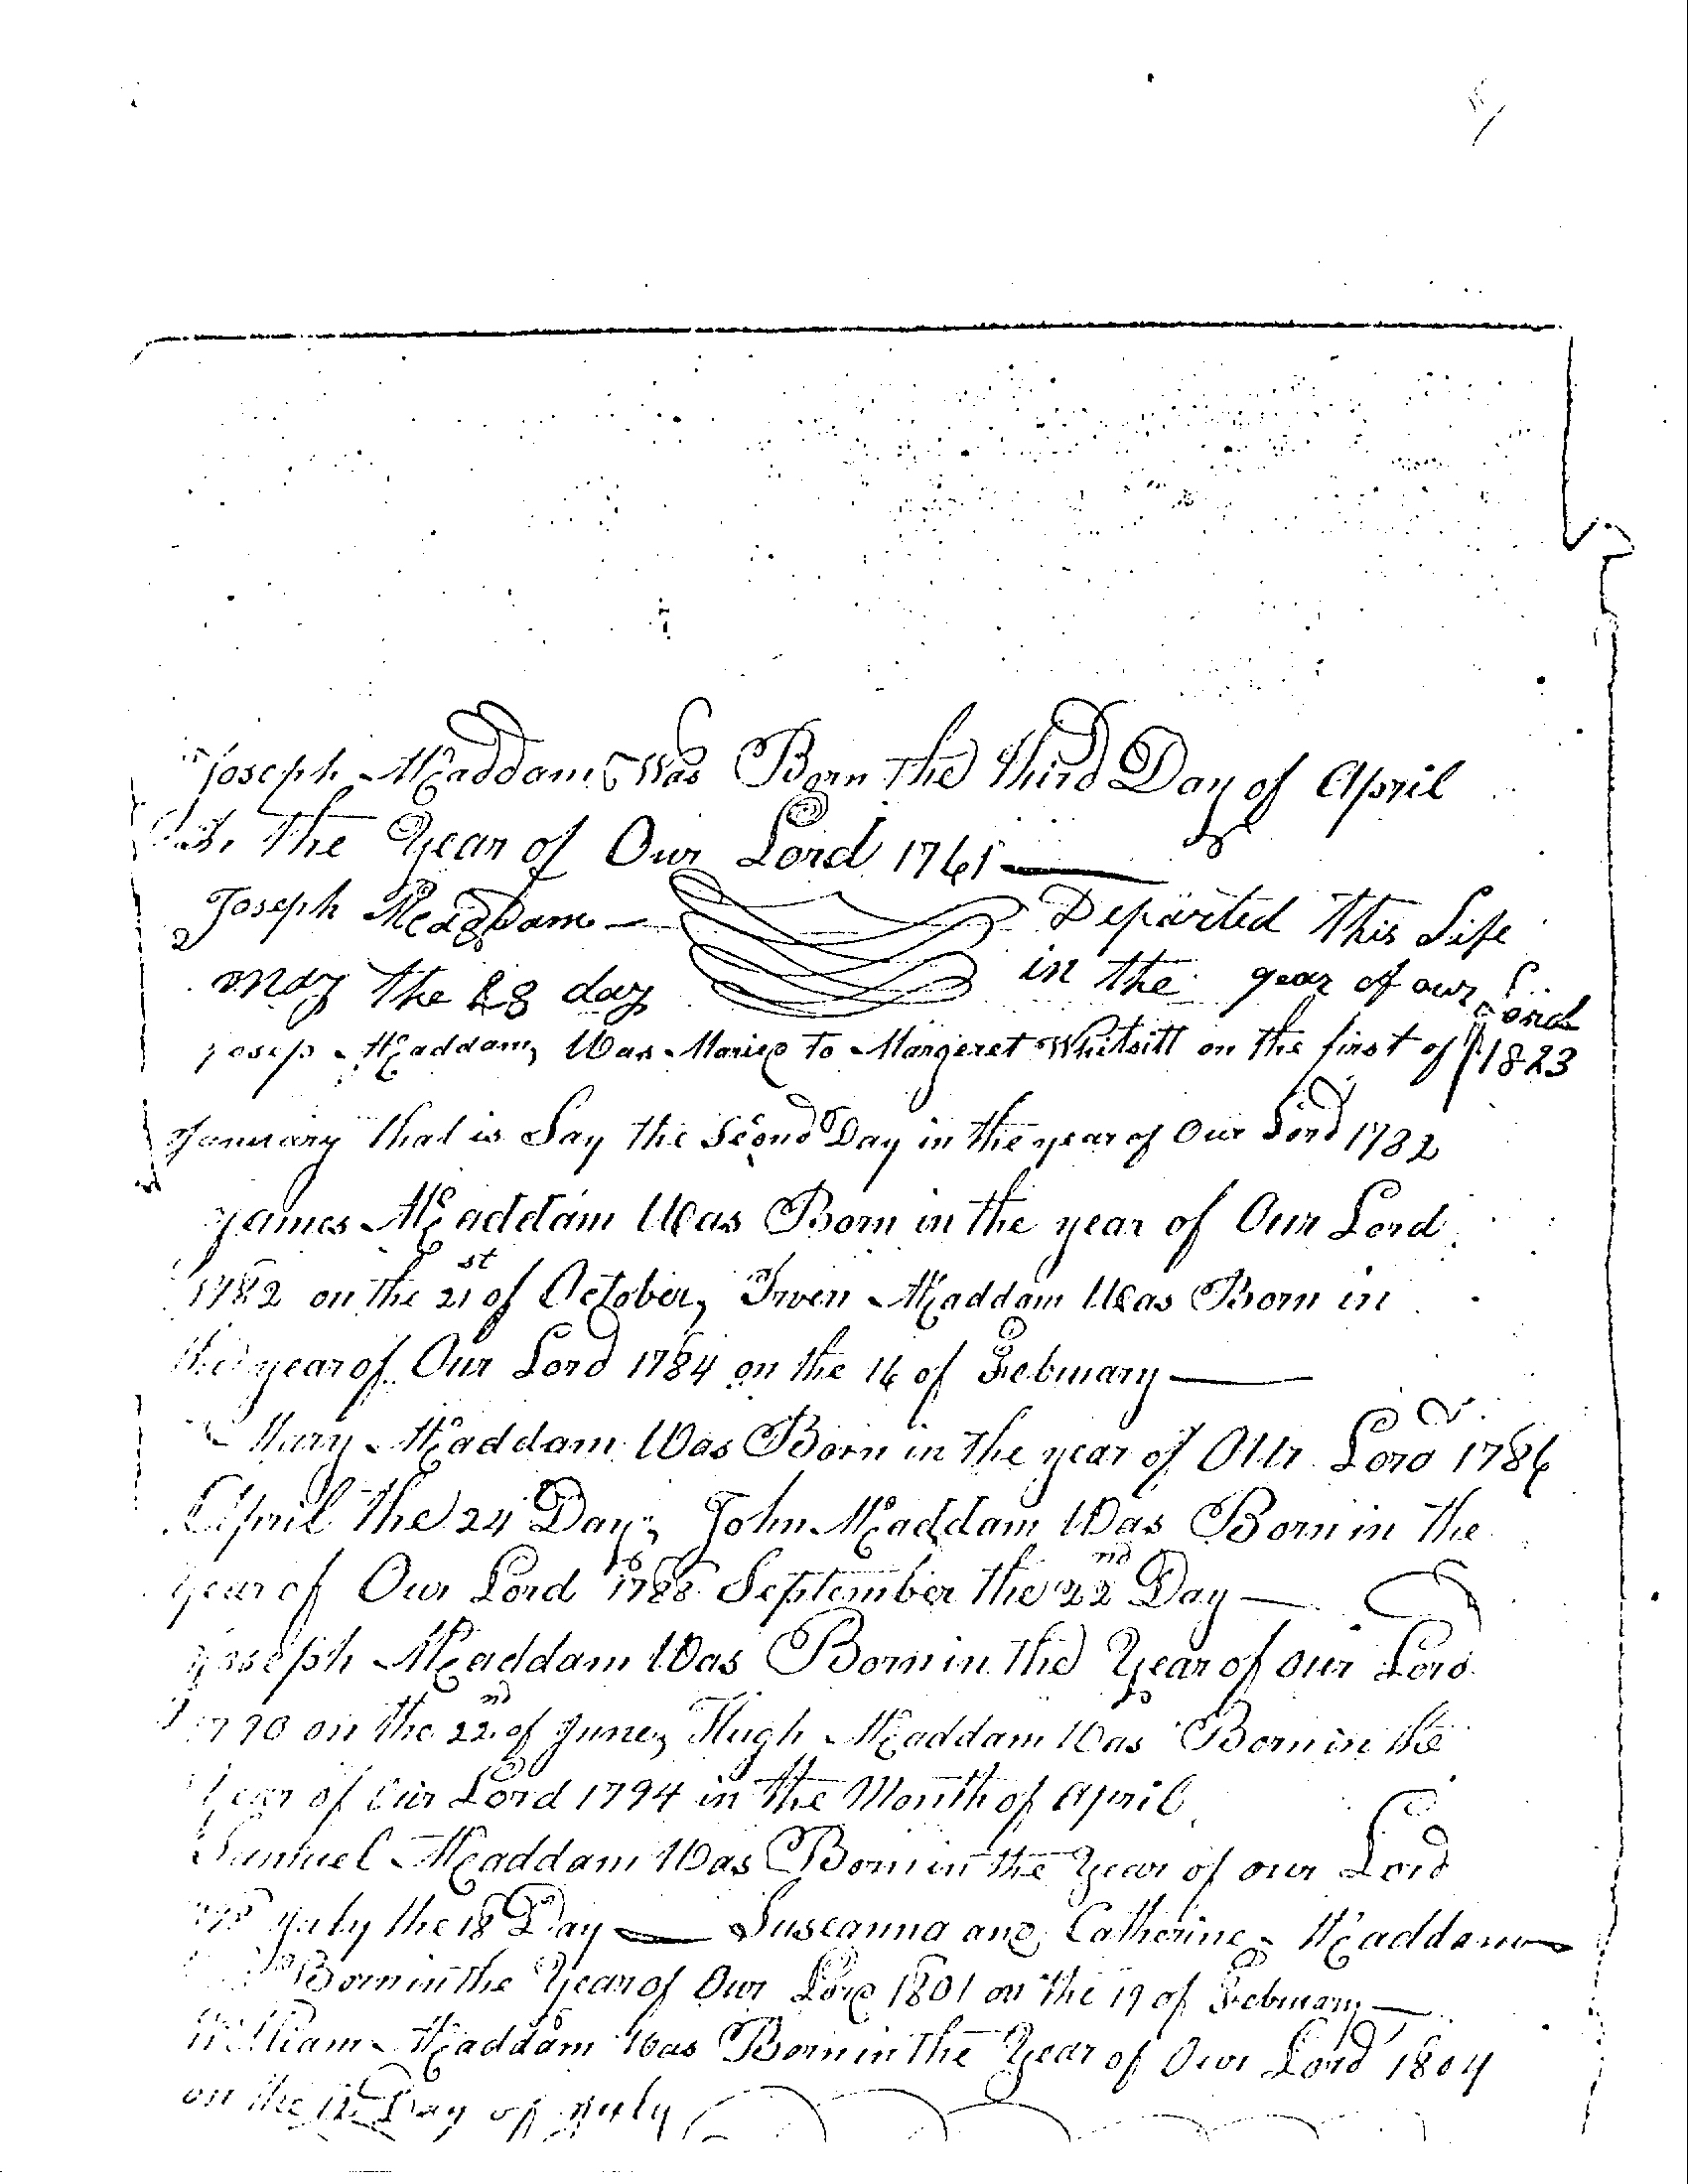 Joseph McAddams Was Born The third Day of April
In The Year of Our Lord 1761
Joseph McAddams Departed this Life
may the 28 day in the year of our Lord
1823
Josep McAddam, Was Maried To Margeret Whitsitt on the first of
January that is Say the Second Day in the year of Our Lord 1782
James McAddam Was Born in the year of Our Lord
1782 on the 21st of October, Irven McAddam Was Born in
the year of Our Lord 1784 on the 16 of February
Mary McAddam Was Born in the year of Our Lord 1786
April the 24 Day, John McAddam Was Born in the
year of Our Lord 1788 September the 22nd Day
Joseph McAddam Was Born in the Year of our Lord
1790 on the 22nd of June, Hugh McAddam Was Born in the
Year of Our Lord 1794 in the Month of April
Samuel McAddam Was Born in the Year of our Lord
July the 18 Day Suseanna and Catherine McAddams
Born in the Year of Our Lord 1801 on the 19 of February
William McAddam Was Born in the Year of Our Lord 1804
on the 12 Day of July